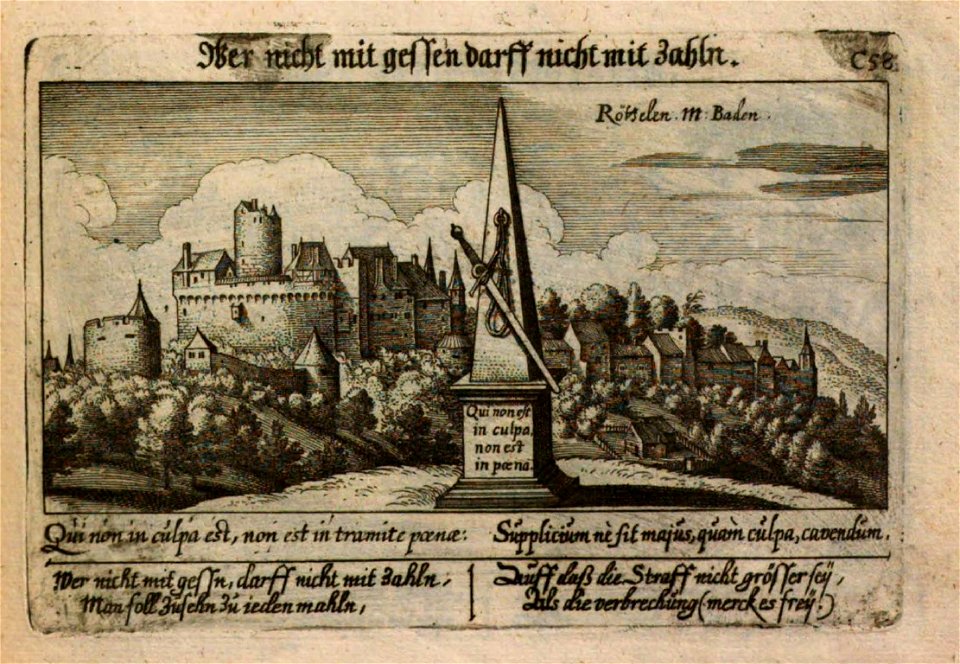 Wer nicht mit gessen darff nicht mit Zahln.
C58
Rötelen. M: Baden.
Qui non est
in culpa,
non est
in pœna.
Qui non in culpa est, non est in tramite pœnæ:
Supplicium nè sit majus, quàm culpa, cavendum.
Wer nicht mit gessn, darff nicht mit Zahln,
Man soll Zusehn Zu ieden mahln,
Auff daß die Straff nicht grösser seÿ,
Als die verbrechung (merck es freÿ.)